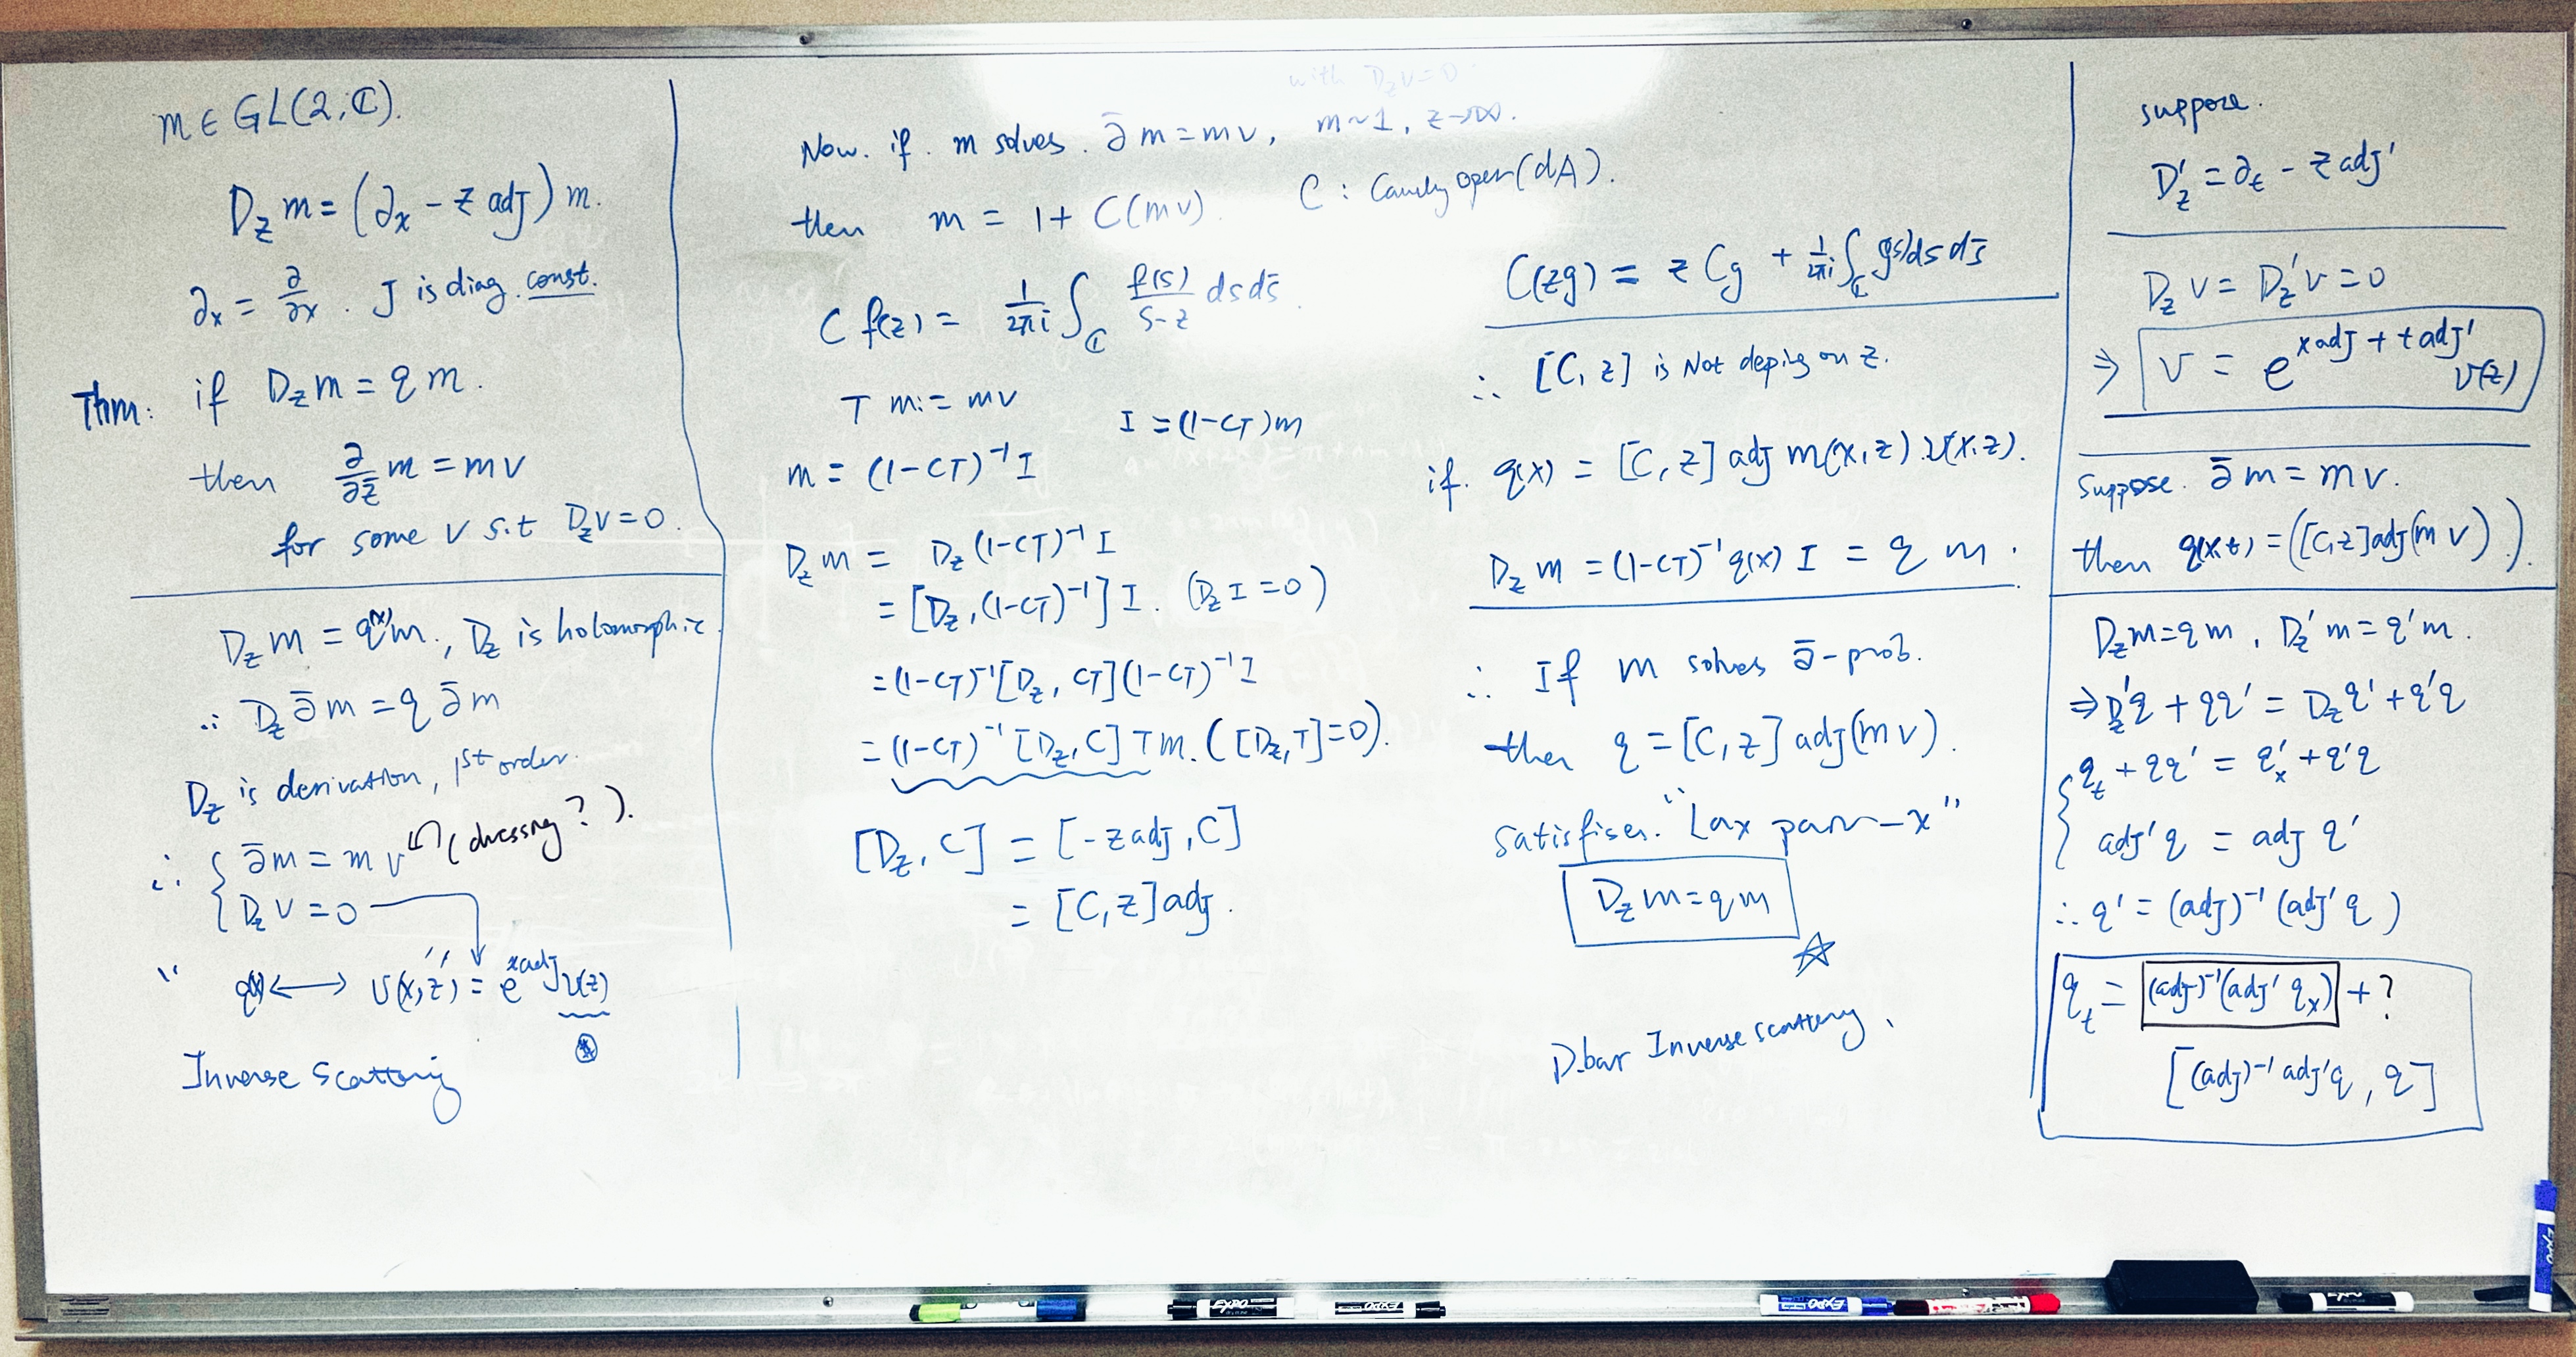 m ∈ GL(2, ℂ).
D_z m = (∂_x − z adj) m.
∂_x = ∂/∂x . J is diag. const.
Thm: if D_z m = q m.
then ∂/∂z̄ m = m v
for some v s.t D_z v = 0.
D_z m = q(x) m., D_z is holomorphic.
∴ D_z ∂̄ m = q ∂̄ m
D_z is derivation, 1st order.
∴ { ∂̄ m = m v (dressing?).
D_z v = 0
" q(x) ⟷ v(x, z) = e^{x adJ} v(z) "
Inverse Scattering
with D_z v = 0
Now. if. m solves. ∂̄ m = m v, m ~ 1, z → ∞.
then m = 1 + C(m v). C : Cauchy oper (dA).
C f(z) = 1/2πi ∫_ℂ f(s)/s−z ds ds̄.
T m := m v
I = (1−CT) m
m = (1−CT)⁻¹ I
D_z m = D_z (1−CT)⁻¹ I
= [D_z, (1−CT)⁻¹] I. (D_z I = 0)
= (1−CT)⁻¹ [D_z, CT] (1−CT)⁻¹ I
= (1−CT)⁻¹ [D_z, C] T m. ( [D_z, T] = 0 ).
[D_z, C] = [−z adj, C]
= [C, z] adj.
C(zg) = z Cg + 1/2πi ∫_ℂ g(s) ds ds̄
∴ [C, z] is Not deping on z.
if. q(x) = [C, z] adj m(x, z) v(x, z).
D_z m = (1−CT)⁻¹ q(x) I = q m.
∴ If m solves ∂̄-prob.
then q = [C, z] adj(m v).
satisfises. "Lax pair−x"
D_z m = q m
☆
D-bar Inverse scattering.
suppose.
D'_z = ∂_t − z adj'
D_z v = D_z' v = 0
⇒ v = e^{x adj + t adj'} v(z)
Suppose. ∂̄ m = m v.
then q(x,t) = ([C, z] adj(m v)).
D_z m = q m, D_z' m = q' m.
⇒ D_z' q + q q' = D_z q' + q' q
{ q_t + q q' = q'_x + q' q
adj' q = adj q'
∴ q' = (adj)⁻¹ (adj' q)
q_t = (adj)⁻¹ (adj' q_x) + ?
[(adj)⁻¹ adj' q, q]
EXPO